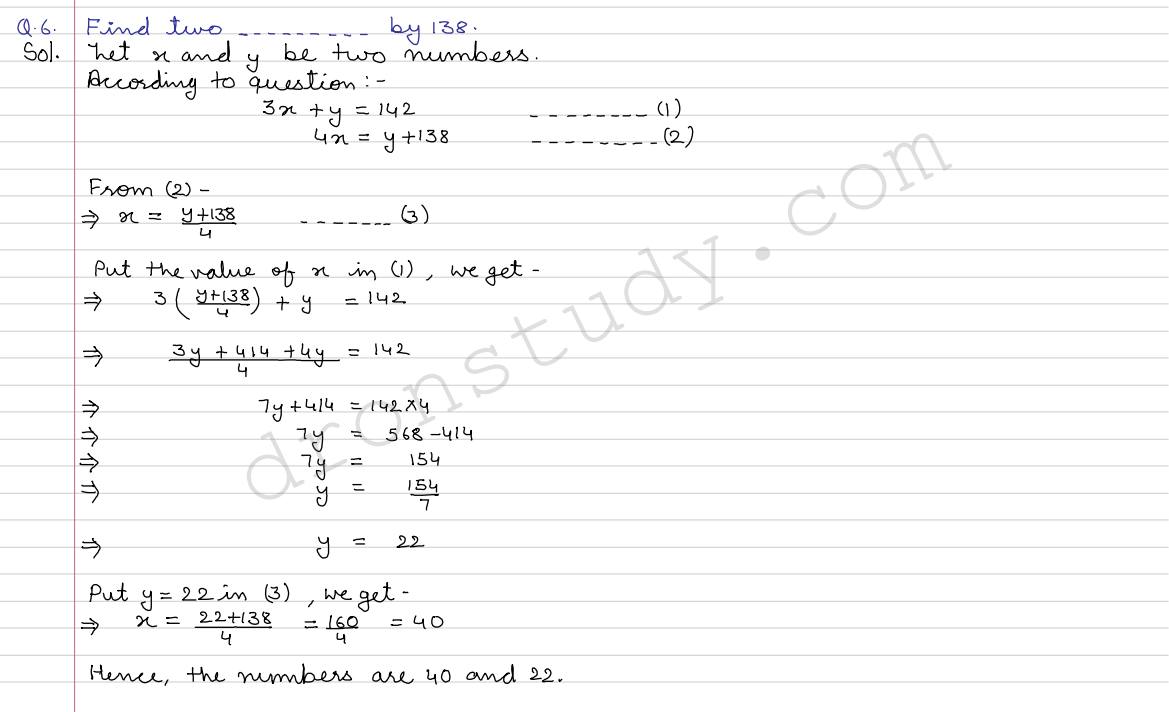 Q.6. Find two --------- by 138.
Sol. Let x and y be two numbers.
According to question :-
3x + y = 142 -------- (1)
4x = y+138 -------- (2)
From (2) -
⇒ x = (y+138)/4 ------- (3)
Put the value of x in (1), we get -
⇒ 3 ( (y+138)/4 ) + y = 142
⇒ (3y + 414 + 4y)/4 = 142
⇒ 7y + 414 = 142 × 4
⇒ 7y = 568 - 414
⇒ 7y = 154
⇒ y = 154/7
⇒ y = 22
Put y = 22 in (3), we get -
⇒ x = (22+138)/4 = 160/4 = 40
Hence, the numbers are 40 and 22.
dronstudy.com